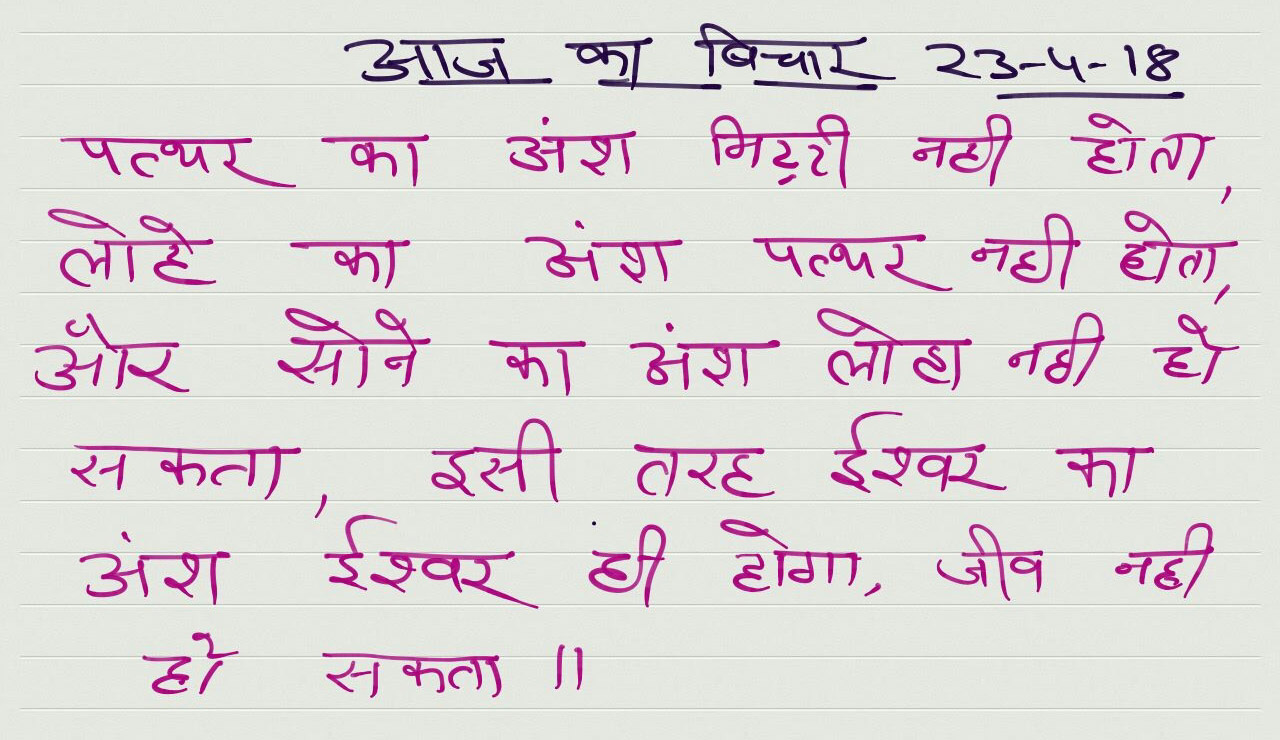 आज का बिचार 23-4-18
पत्थर का अंश मिट्टी नही होता,
लोहे का अंश पत्थर नही होता,
और सोने का अंश लोहा नही हो
सकता, इसी तरह ईश्वर का
अंश ईश्वर ही होगा, जीव नही
हो सकता ॥